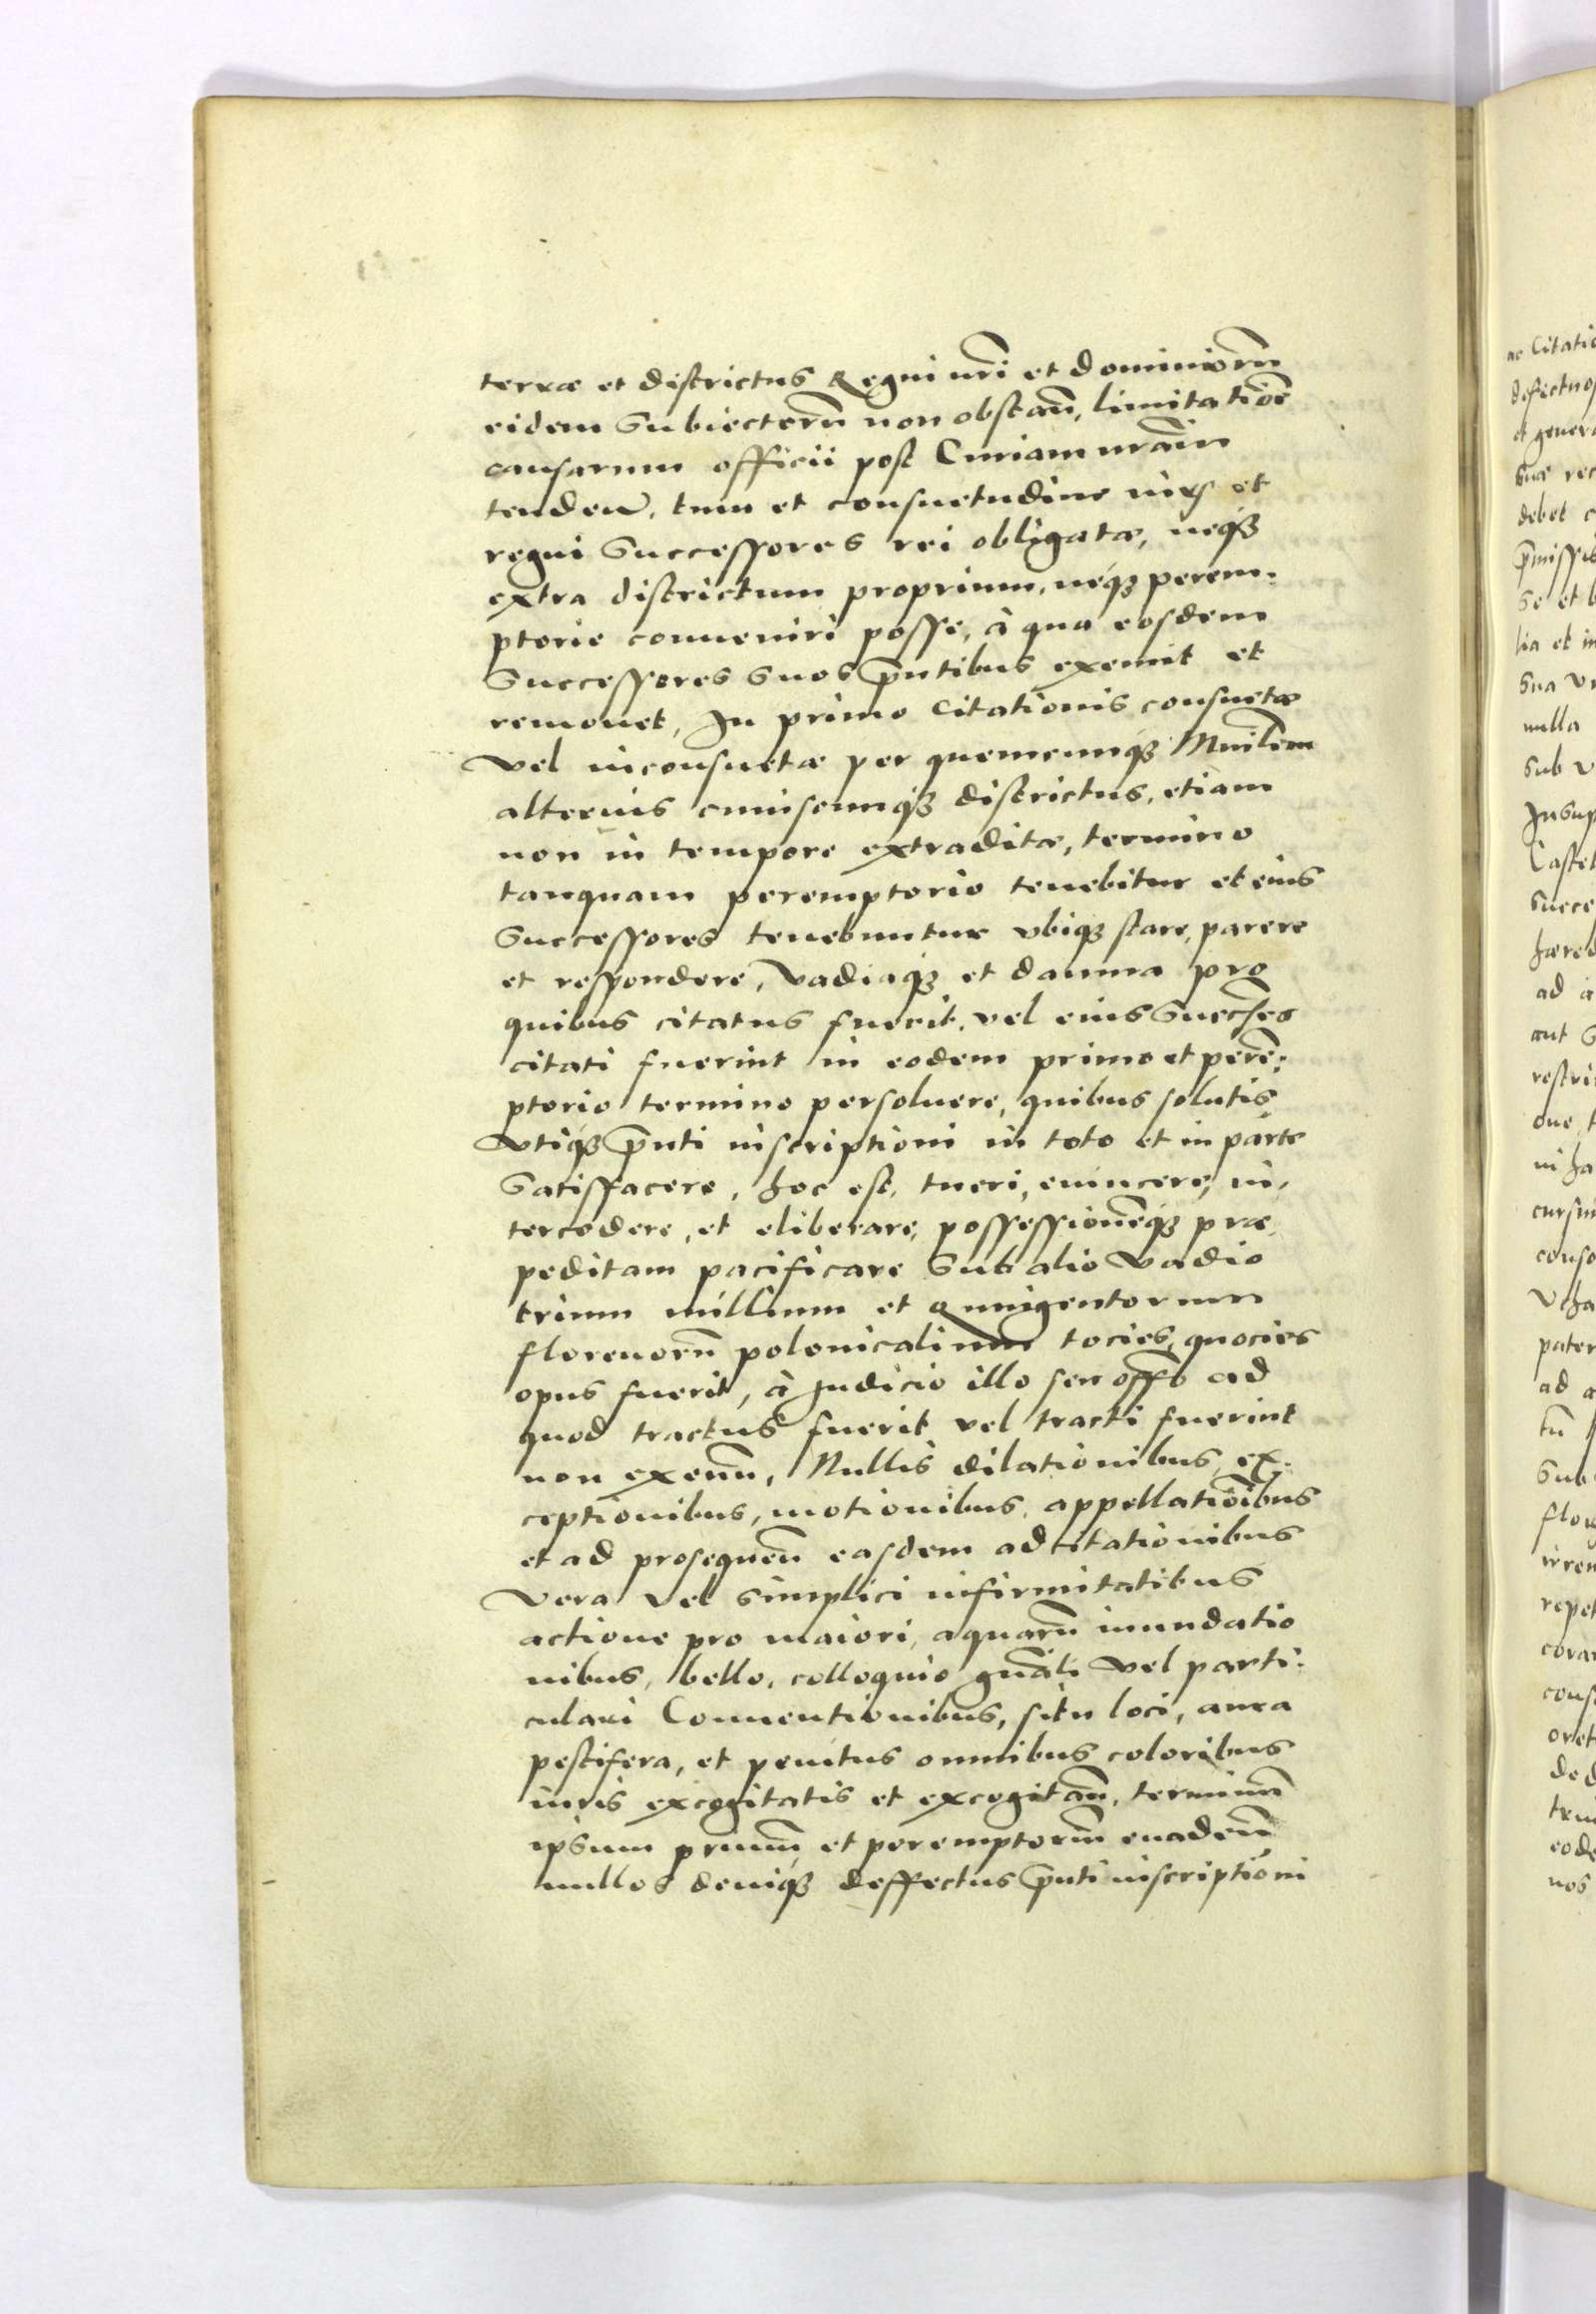 terræ et districtus Regni nr̃i et dominiorũ
eidem Subiectorũ non obstañ, limitatiõe
causarum officii post Curiam nrãm
tendeñ, tum et consuetudine iuris et
regni Successores rei obligatæ, neq3
extra districtum proprium, neq3 perem:
ptorie conueniri posse, à qua eosdem
Successores suos p̃ntibus exemit et
remouet, In primo Citationis consuetæ
Vel inconsuetæ per quemcumq3
alterius cuiuscumq3 districtus, etiam
non in tempore extraditæ, termino
tanquam peremptorio tenebitur et eius
Successores tenebuntur vbiq3 stare, parere
et respondere, Vadiaq3 et damna pro
quibus citatus fuerit, vel eius Succes̃res
citati fuerint in eodem primo et perẽ:
ptorio termino persoluere, quibus solutis
Vtiq3 p̃nti inscriptioni in toto et in parte
Satisfacere, hoc est, tueri, euincere, in,
tercedere, et eliberare, possessionẽq3 præ,
peditam pacificare Sub alio Vadio
trium millium et Quingentorum
florenorũ polonicalium tocies, quocies
opus fuerit, à Judicio illo seu offõ ad
quod tractus fuerit vel tracti fuerint
non exeuñ, Nullis dilationibus, ex:
ceptionibus, motionibus, appellatiõibus
et ad prosequeñ easdem adcitationibus
Vera Vel simplici infirmitatibus
actione pro maiori, aquarũ inundatio
nibus, bello, colloquio gñali Vel parti:
culari Conuentionibus, situ loci, aura
pestifera, et penitus omnibus coloribus
iuris excogitatis et excogitañ, terminũ
ipsum primũ et peremptoriũ euadeñ
nullos deniq3 deffectus p̃nti inscriptioni